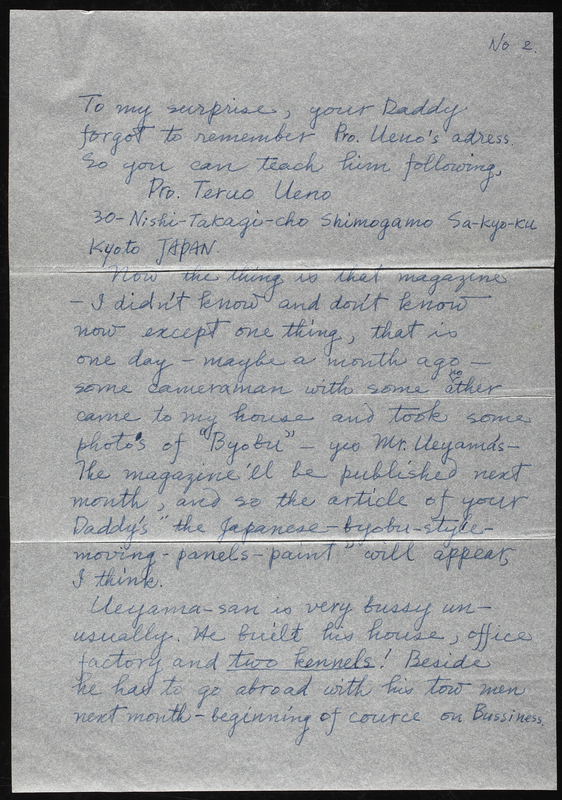 No 2.
To my surprise, your Daddy
forgot to remember Pro. Ueno's adress.
So you can teach him following,
Pro. Teruo Ueno
30-Nishi-Takagi-cho Shimogamo Sa-kyo-ku
Kyoto JAPAN.
Now the thing is that magazine
- I didn't know and don't know
now except one thing, that is
one day - maybe a month ago -
some cameraman with some other
came to my house and took some
photo's of "Byobu" - yes Mr. Ueyama's -
The magazine'll be published next
month, and so the article of your
Daddy's "the Japanese-byobu-style-
moving-panels-paint" will appear,
I think.
Ueyama-san is very bussy un-
usually. He built his house, office
factory and two kennels! Beside
he has to go abroad with his tow men
next month - beginning of cource on Bussiness.